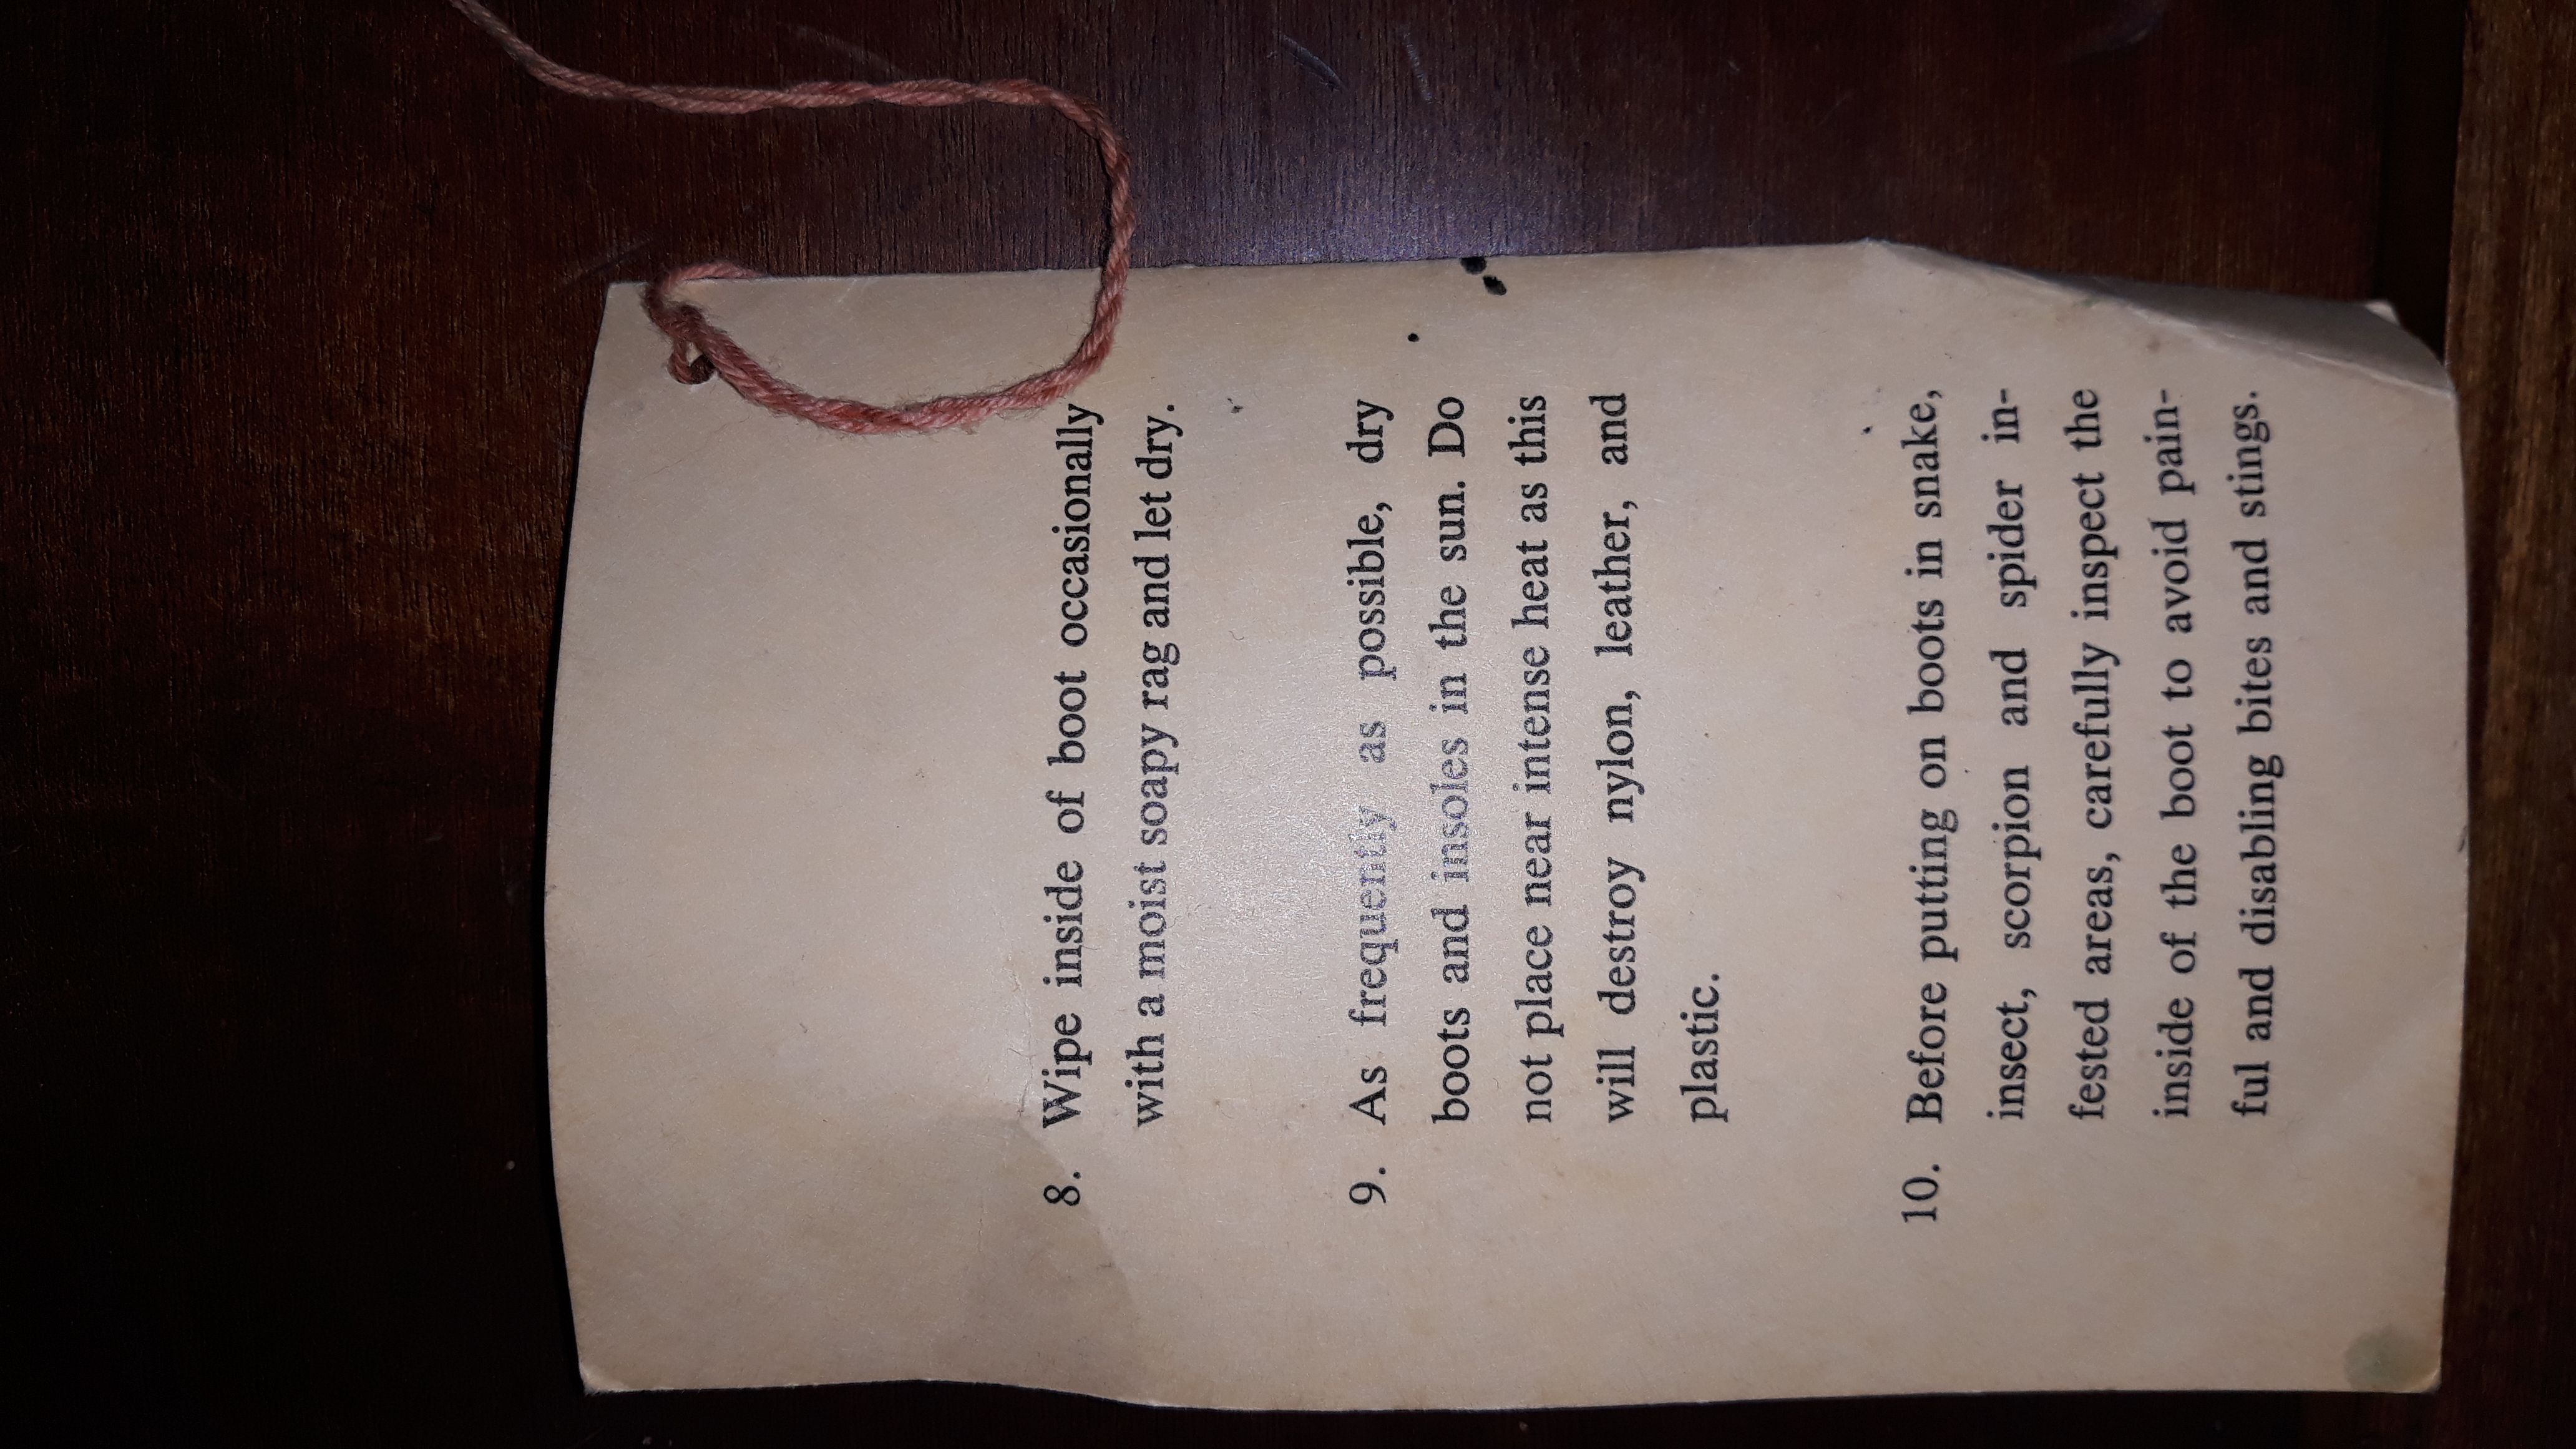 8. Wipe inside of boot occasionally
with a moist soapy rag and let dry.
9. As frequently as possible, dry
boots and insoles in the sun. Do
not place near intense heat as this
will destroy nylon, leather, and
plastic.
10. Before putting on boots in snake,
insect, scorpion and spider in-
fested areas, carefully inspect the
inside of the boot to avoid pain-
ful and disabling bites and stings.